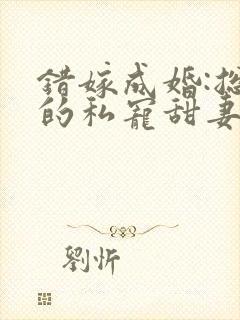 错嫁成婚:
的私寵甜妻
劉忻